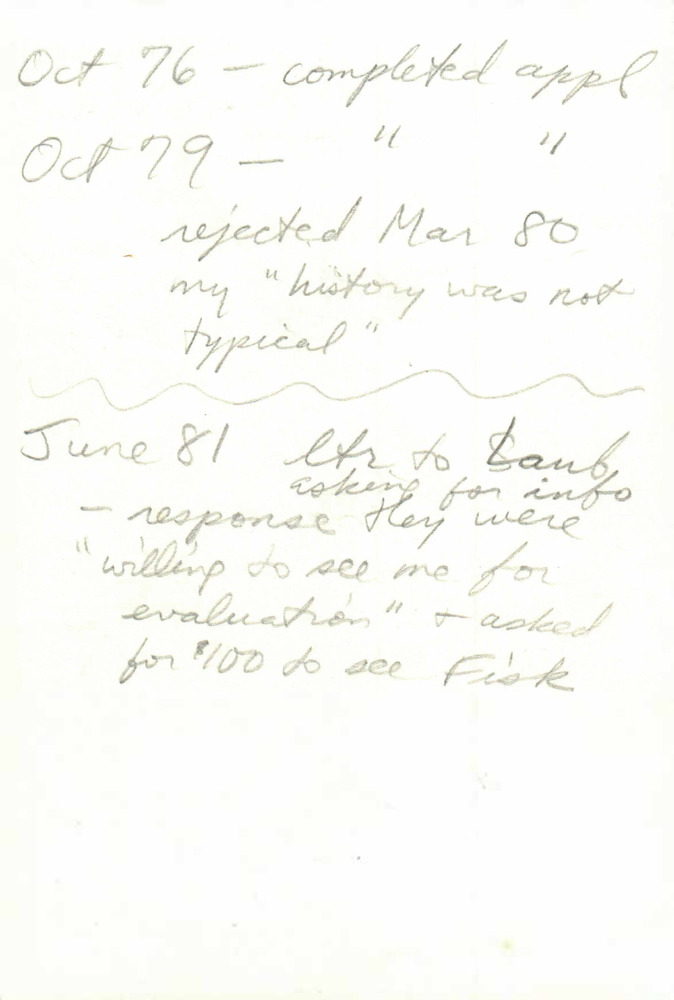 Oct 76 — completed appl
Oct 79 — " "
rejected Mar 80
my "history was not
typical"
June 81 ltr to Laub
asking for info
— response they were
"willing to see me for
evaluation" + asked
for $100 to see Fisk